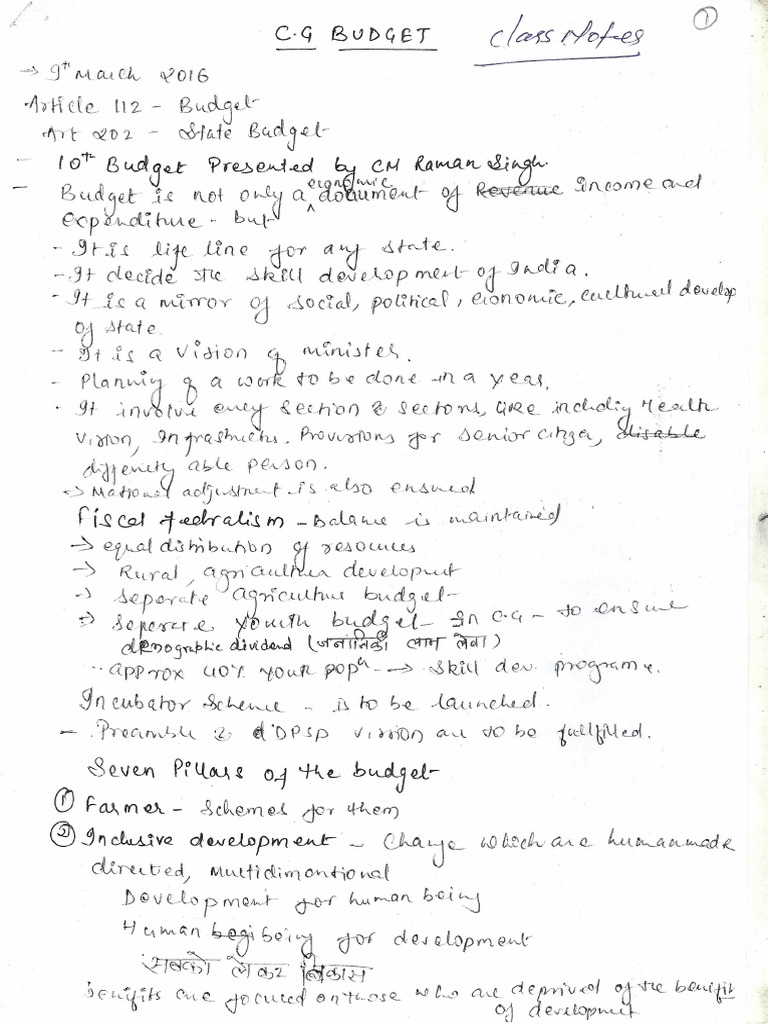 C.G BUDGET class Notes 1
→ 9th March 2016
Article 112 - Budget
Art 202 - State Budget
- 10th Budget Presented by CM Raman Singh.
- Budget is not only a economic document of Revenue income and
expenditure - but
- It is life line for any state.
- It decide the skill development of India.
- It is a mirror of social, political, economic, cultural develop
of state.
- It is a vision of minister.
- Planning of a work to be done in a year.
It involve every section & sectors, like including Health
vision, Infrastructu. Provisions for senior citizen, disable
differently able person.
→ National adjustment is also ensured
Fiscal federalism - Balance is maintained
→ equal distribution of resources
→ Rural, agriculture development
→ seperate agriculture budget
→ seperate youth budget - In C.G - to ensure
demographic dividend (जनांनिकी लाभ लेना)
approx 40% youth popn → skill dev. program.
Incubator scheme - is to be launched.
- Preamble & DPSP vision are to be fullfilled.
Seven Pillars of the budget
① Farmer - schemes for them
② Inclusive development - Change which are humanmade
directed, Multidimontional
Development for human being
Human begi being for development
सबको लेकर विकास
benifits are focused on those who are deprived of the benifit
of development